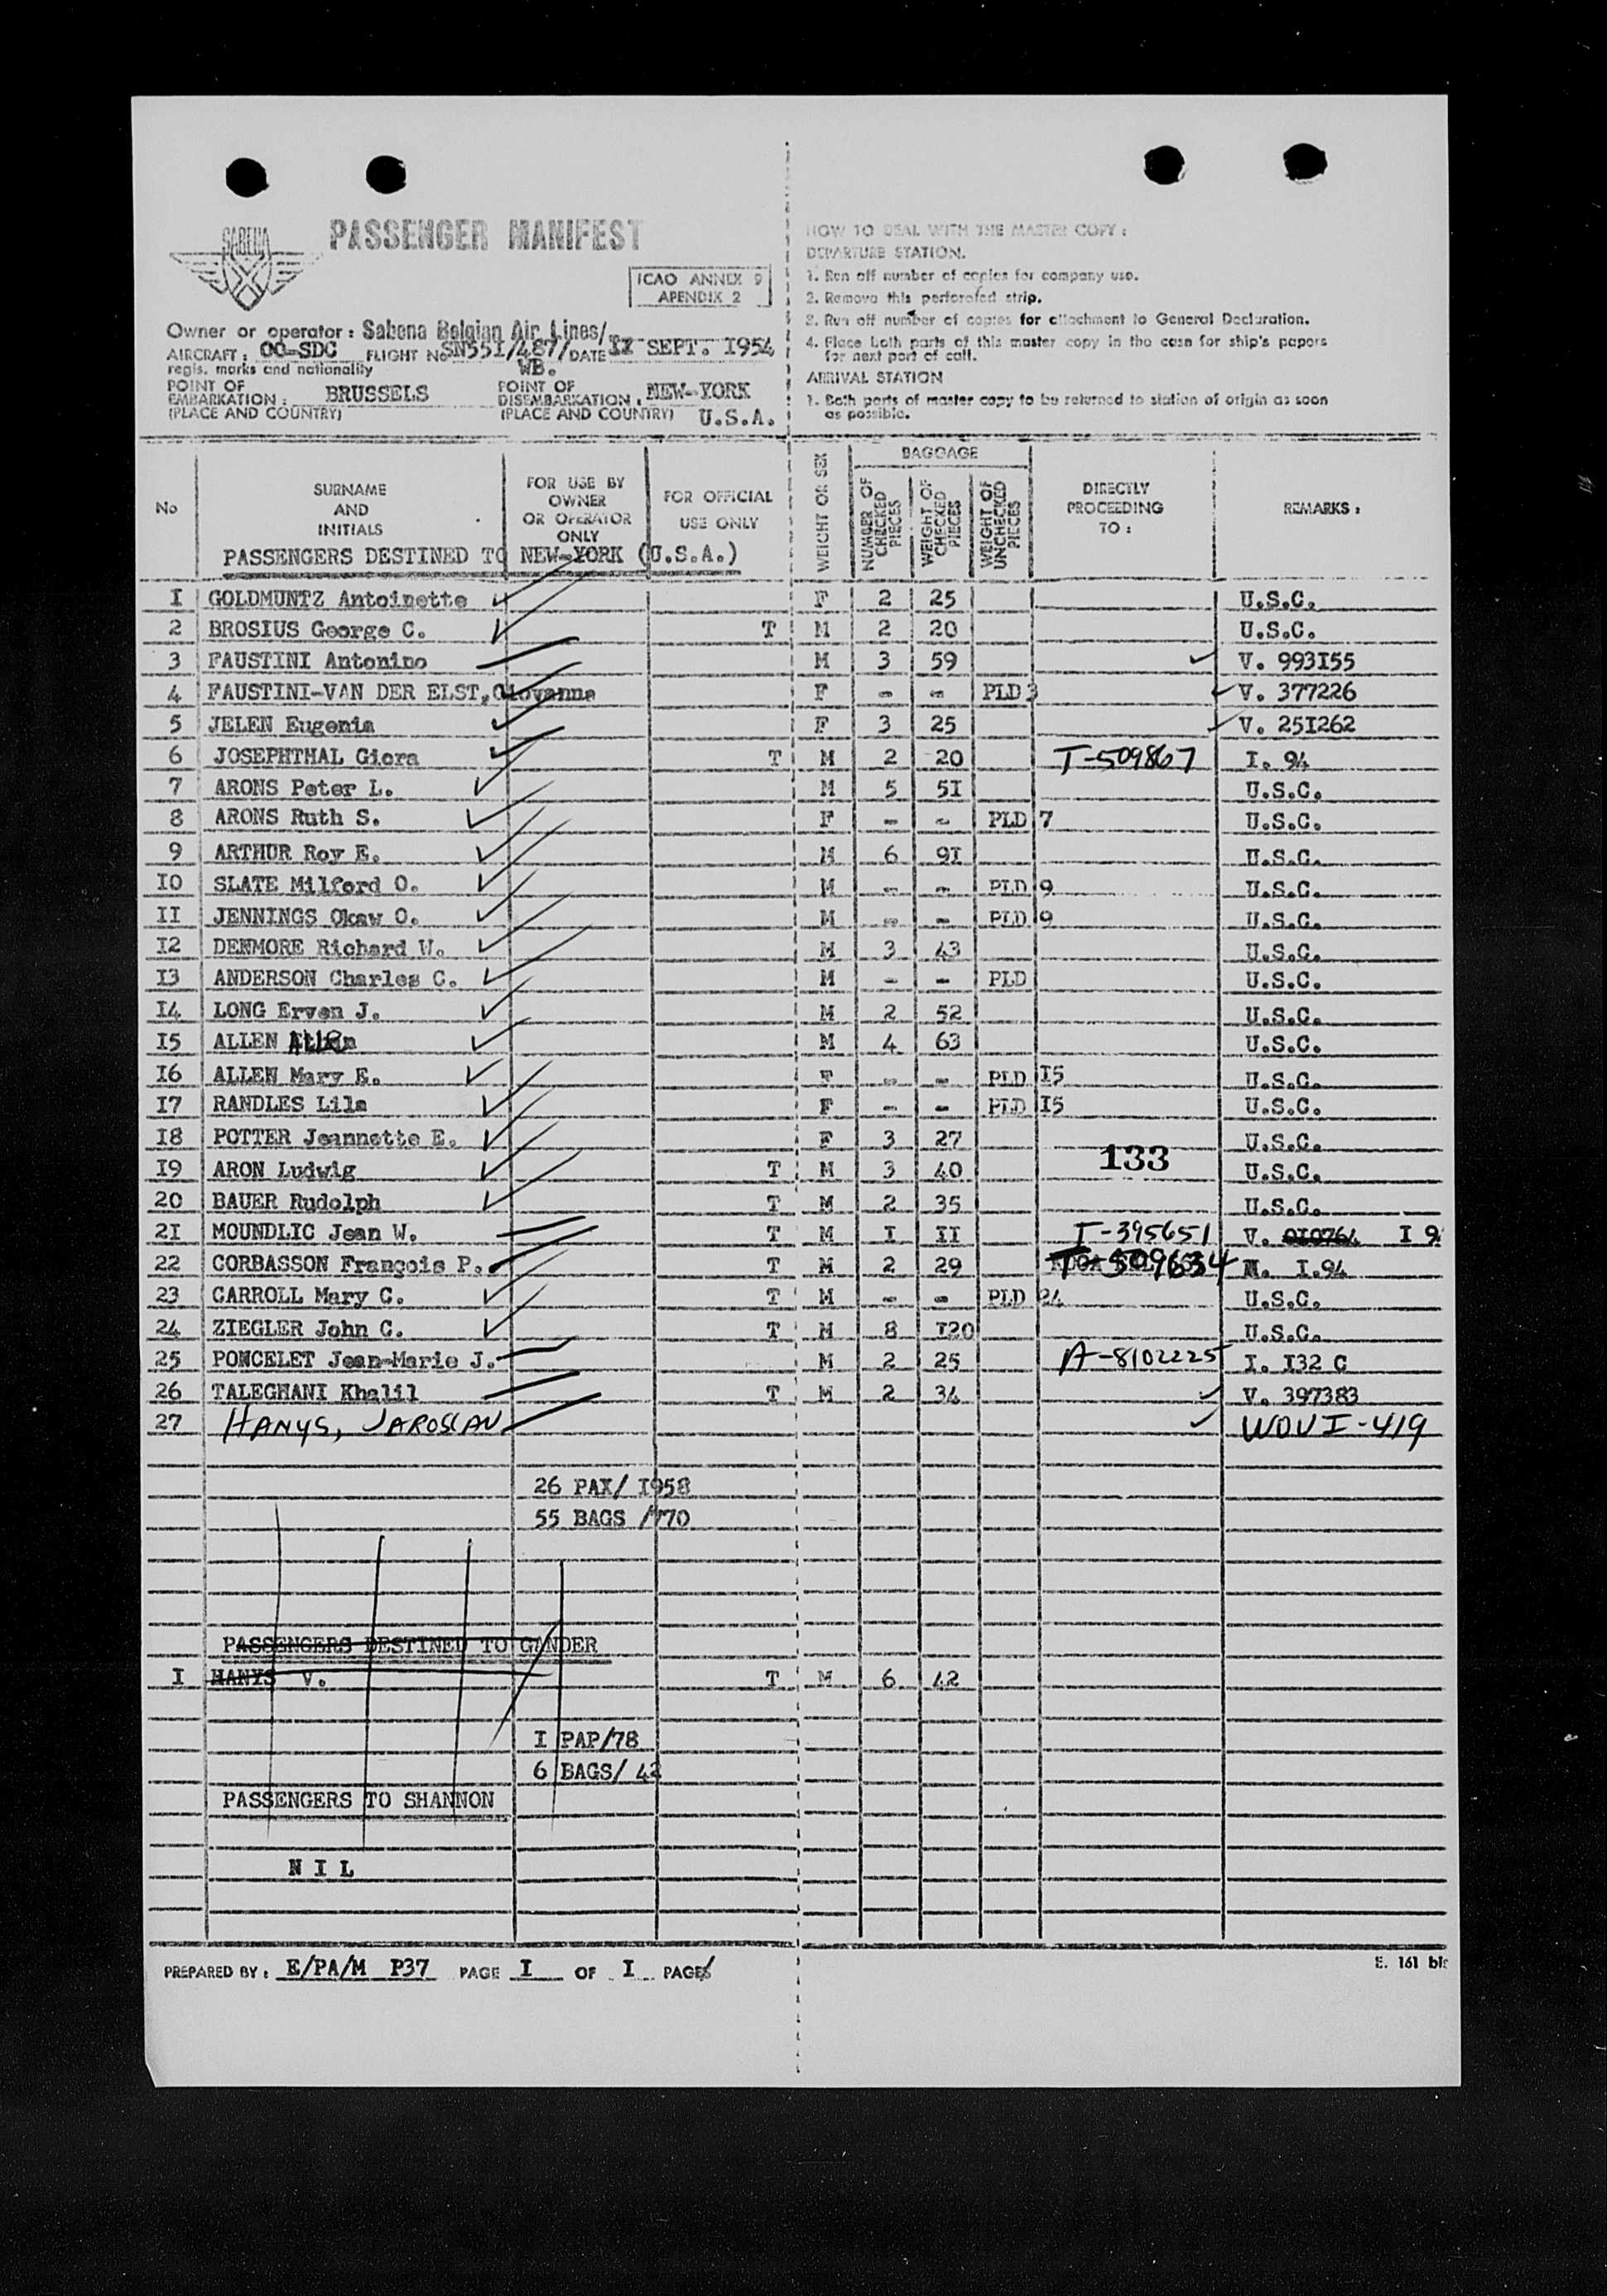 SABENA
PASSENGER MANIFEST
ICAO ANNEX 9
APENDIX 2
Owner or operator : Sabena Belgian Air Lines/
AIRCRAFT : OO-SDC FLIGHT No SN551/487/ DATE SEPT. I954
regis. marks and nationality WB.
POINT OF EMBARKATION : BRUSSELS POINT OF DISEMBARKATION : NEW-YORK
(PLACE AND COUNTRY) (PLACE AND COUNTRY) U.S.A.
HOW TO DEAL WITH THE MASTER COPY :
DEPARTURE STATION.
1. Run off number of copies for company use.
2. Remove this perforated strip.
3. Run off number of copies for attachment to General Declaration.
4. Place both parts of this master copy in the case for ship's papers
for next port of call.
ARRIVAL STATION
1. Both parts of master copy to be returned to station of origin as soon
as possible.
No SURNAME AND INITIALS FOR USE BY OWNER OR OPERATOR ONLY FOR OFFICIAL USE ONLY WEIGHT OR SEX BAGGAGE NUMBER OF CHECKED PIECES WEIGHT OF CHECKED PIECES WEIGHT OF UNCHECKED PIECES DIRECTLY PROCEEDING TO : REMARKS :
PASSENGERS DESTINED TO NEW-YORK (U.S.A.)
I GOLDMUNTZ Antoinette F 2 25 U.S.C.
2 BROSIUS George C. T M 2 20 U.S.C.
3 FAUSTINI Antonino M 3 59 V. 993I55
4 FAUSTINI-VAN DER ELST,Giovanna F - - PLD 3 V. 377226
5 JELEN Eugenia F 3 25 V. 25I262
6 JOSEPHTHAL Giora T M 2 20 T-509867 I. 94
7 ARONS Peter L. M 5 5I U.S.C.
8 ARONS Ruth S. F - - PLD 7 U.S.C.
9 ARTHUR Roy E. M 6 9I U.S.C.
IO SLATE Milford O. M - - PLD 9 U.S.C.
II JENNINGS Okaw O. M - - PLD 9 U.S.C.
I2 DENMORE Richard W. M 3 43 U.S.C.
I3 ANDERSON Charles C. M - - PLD U.S.C.
I4 LONG Erven J. M 2 52 U.S.C.
I5 ALLEN M 4 63 U.S.C.
I6 ALLEN Mary E. F - - PLD I5 U.S.C.
I7 RANDLES Lila F - - PLD I5 U.S.C.
I8 POTTER Jeannette E. F 3 27 U.S.C.
133
I9 ARON Ludwig T M 3 40 U.S.C.
20 BAUER Rudolph T M 2 35 U.S.C.
2I MOUNDLIC Jean W. T M I II T-395651 V. 0I0764 I 9
22 CORBASSON François P. T M 2 29 T-509634 N. I.94
23 CARROLL Mary C. T M - - PLD 24 U.S.C.
24 ZIEGLER John C. T M 8 I20 U.S.C.
25 PONCELET Jean-Marie J. M 2 25 A-8102225 I. I32 C
26 TALEGHANI Khalil T M 2 34 V. 397383
27 HANYS, JAROSLAV WDVI-419
26 PAX/ I958
55 BAGS /770
PASSENGERS DESTINED TO GANDER
I HANYS V. T M 6 42
I PAP/78
6 BAGS/ 42
PASSENGERS TO SHANNON
N I L
PREPARED BY : E/PA/M P37 PAGE I OF I PAGES
E. 161 bis